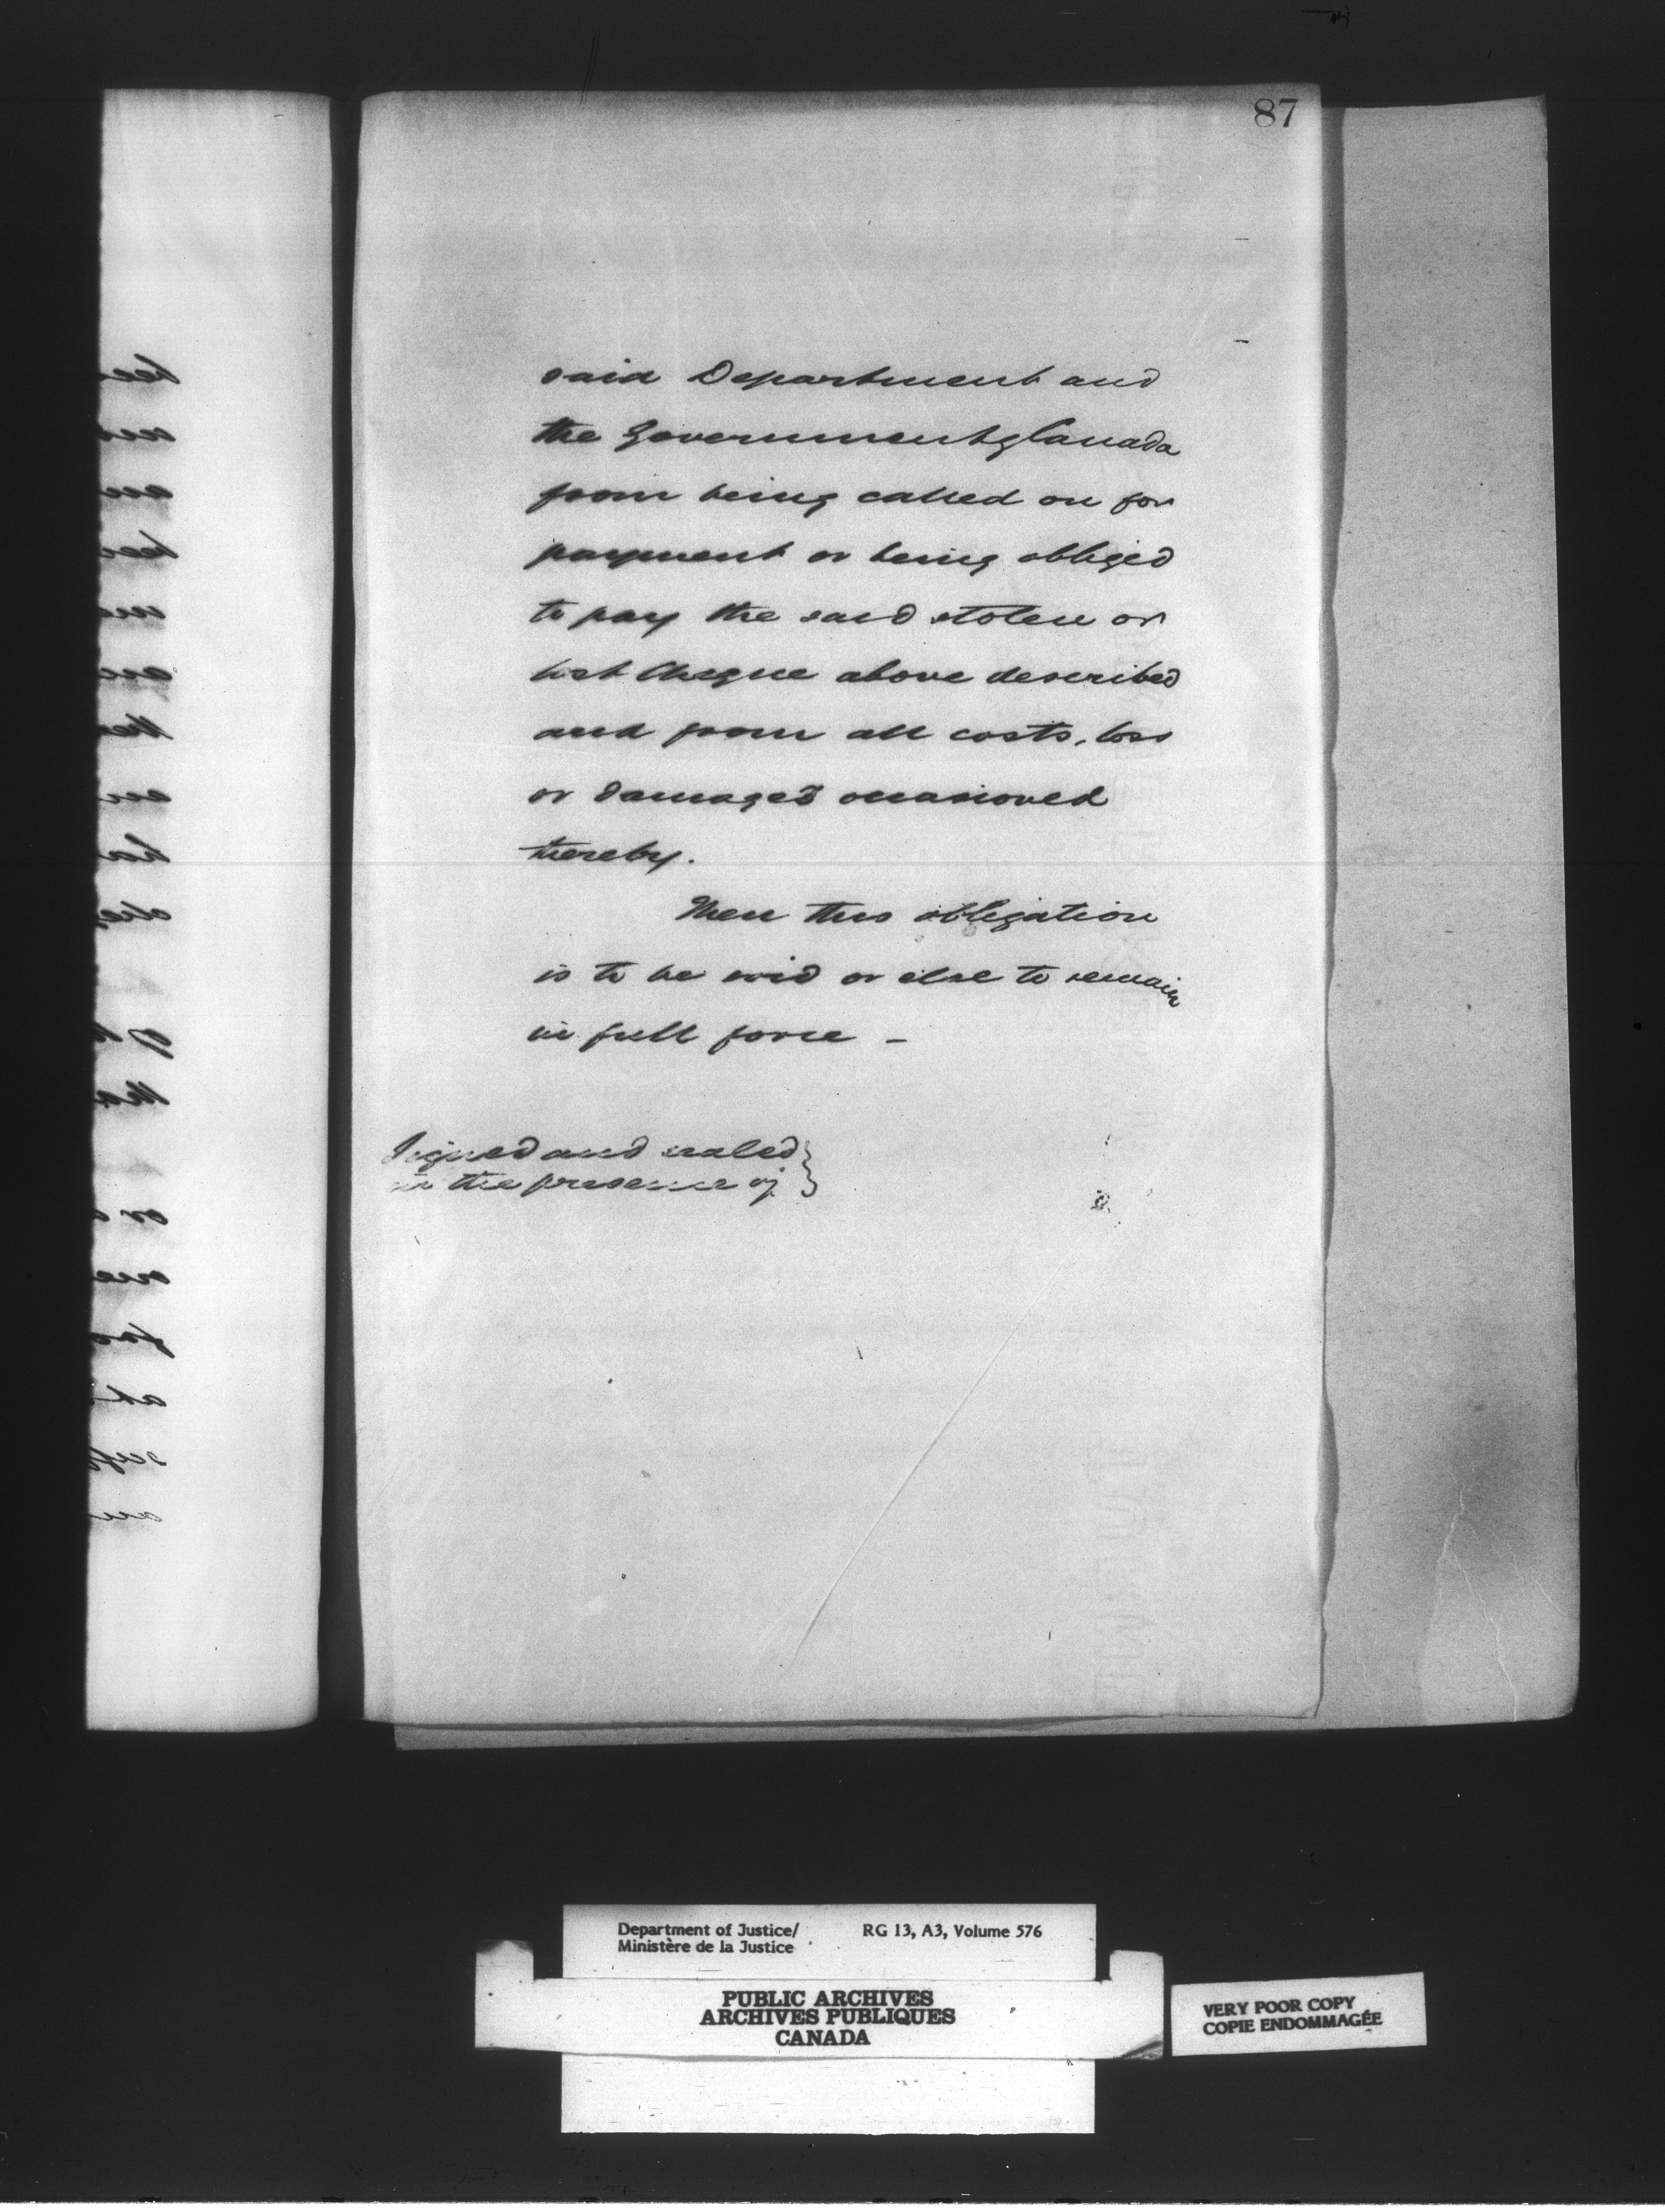 87
said Department and
the Government of Canada
from being called on for
payment or being obliged
to pay the said stolen or
lost Cheque above described
and from all costs, loss
or damages occasioned
thereby.
Then this obligation
is to be void or else to remain
in full force –
Signed and sealed
in the presence of
Department of Justice/ RG 13, A3, Volume 576
Ministère de la Justice
PUBLIC ARCHIVES
ARCHIVES PUBLIQUES
CANADA
VERY POOR COPY
COPIE ENDOMMAGÉE